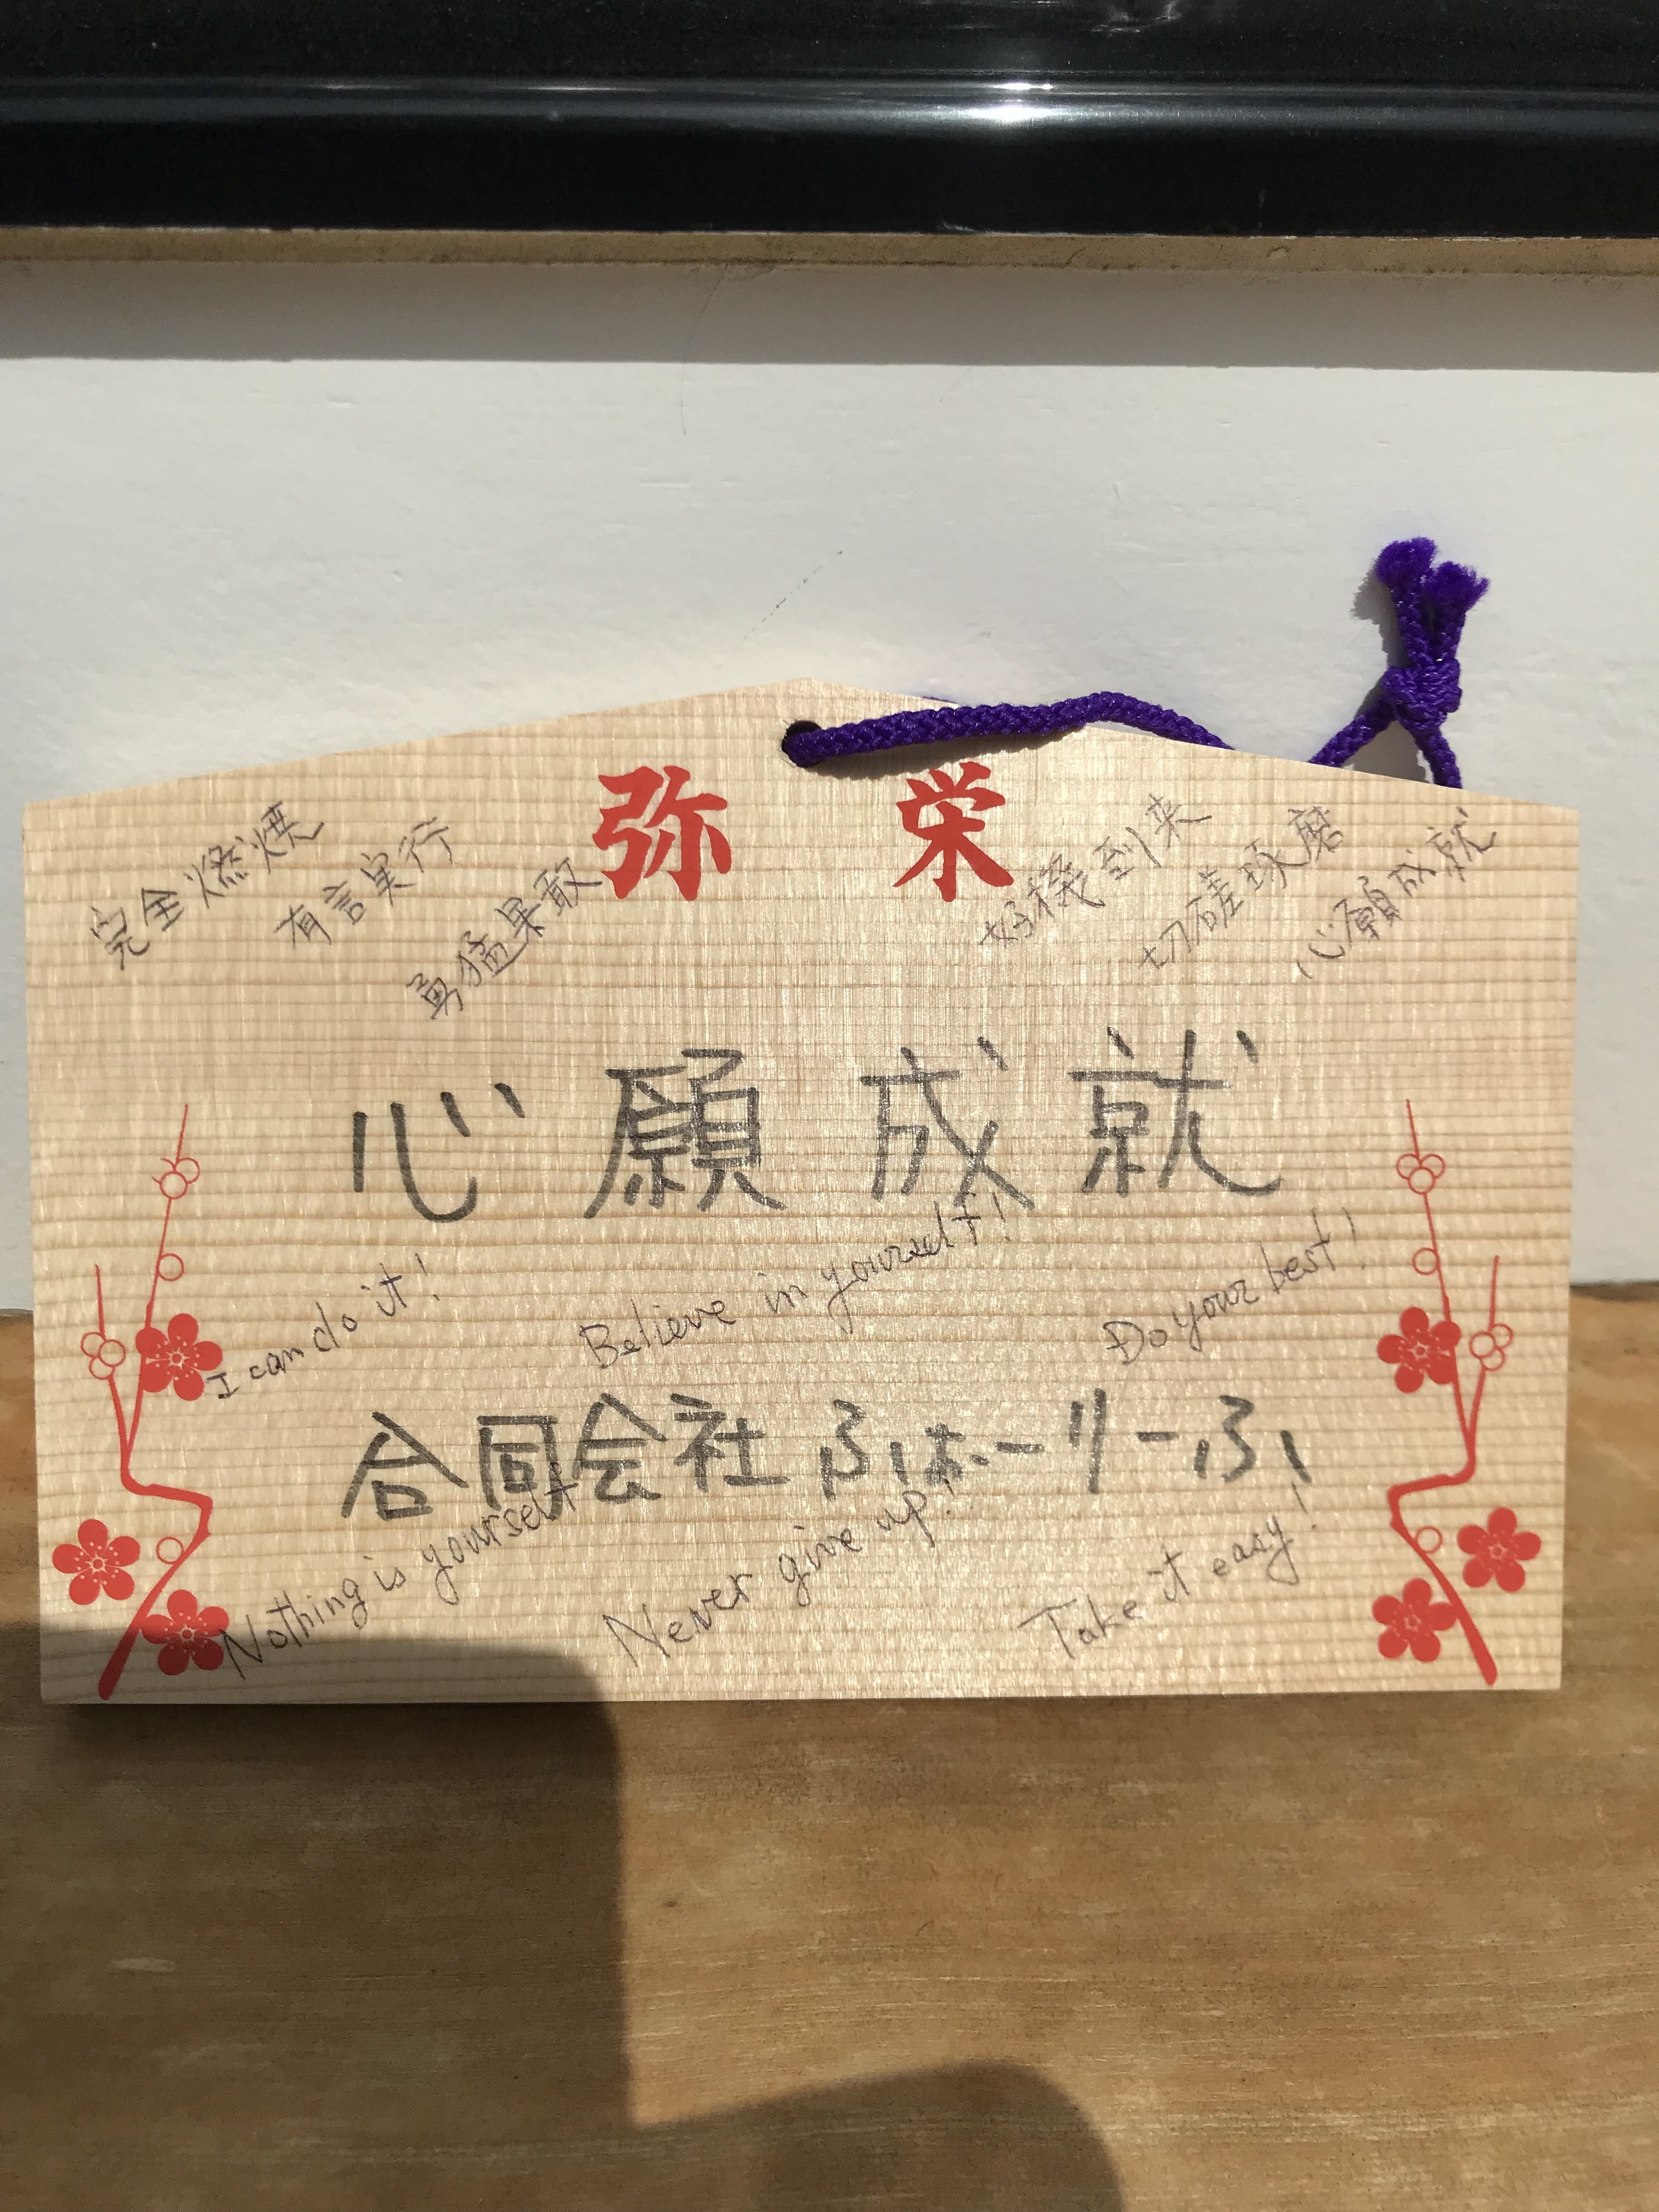 弥栄
完全燃焼
有言実行
勇猛果敢
好機到来
切磋琢磨
心願成就
心願成就
I can do it!
Believe in yourself!
Do your best!
合同会社ふぁーりーふ
Nothing is yourself
Never give up!
Take it easy!